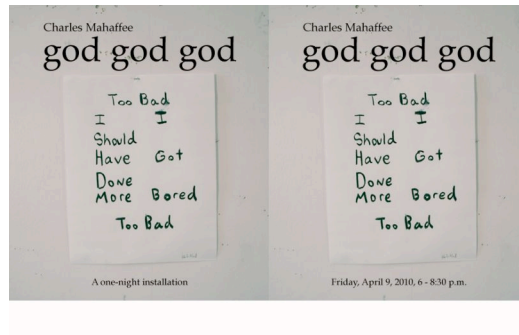 Charles Mahaffee
god god god
Too Bad
I I
Should
Have Got
Done
More Bored
Too Bad
A one-night installation
Charles Mahaffee
god god god
Too Bad
I I
Should
Have Got
Done
More Bored
Too Bad
Friday, April 9, 2010, 6 - 8:30 p.m.